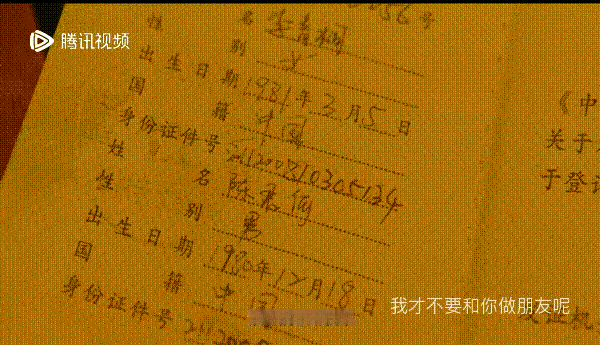 056号
腾讯视频
姓名 李青桐
性别 女
出生日期 1981年3月5日
国籍 中国
身份证件号 211200810305134
姓名 陈君
性别 男
出生日期 1980年12月18日
国籍 中国
身份证件号 211200
《中
关于
于登记
发证机
我才不要和你做朋友呢